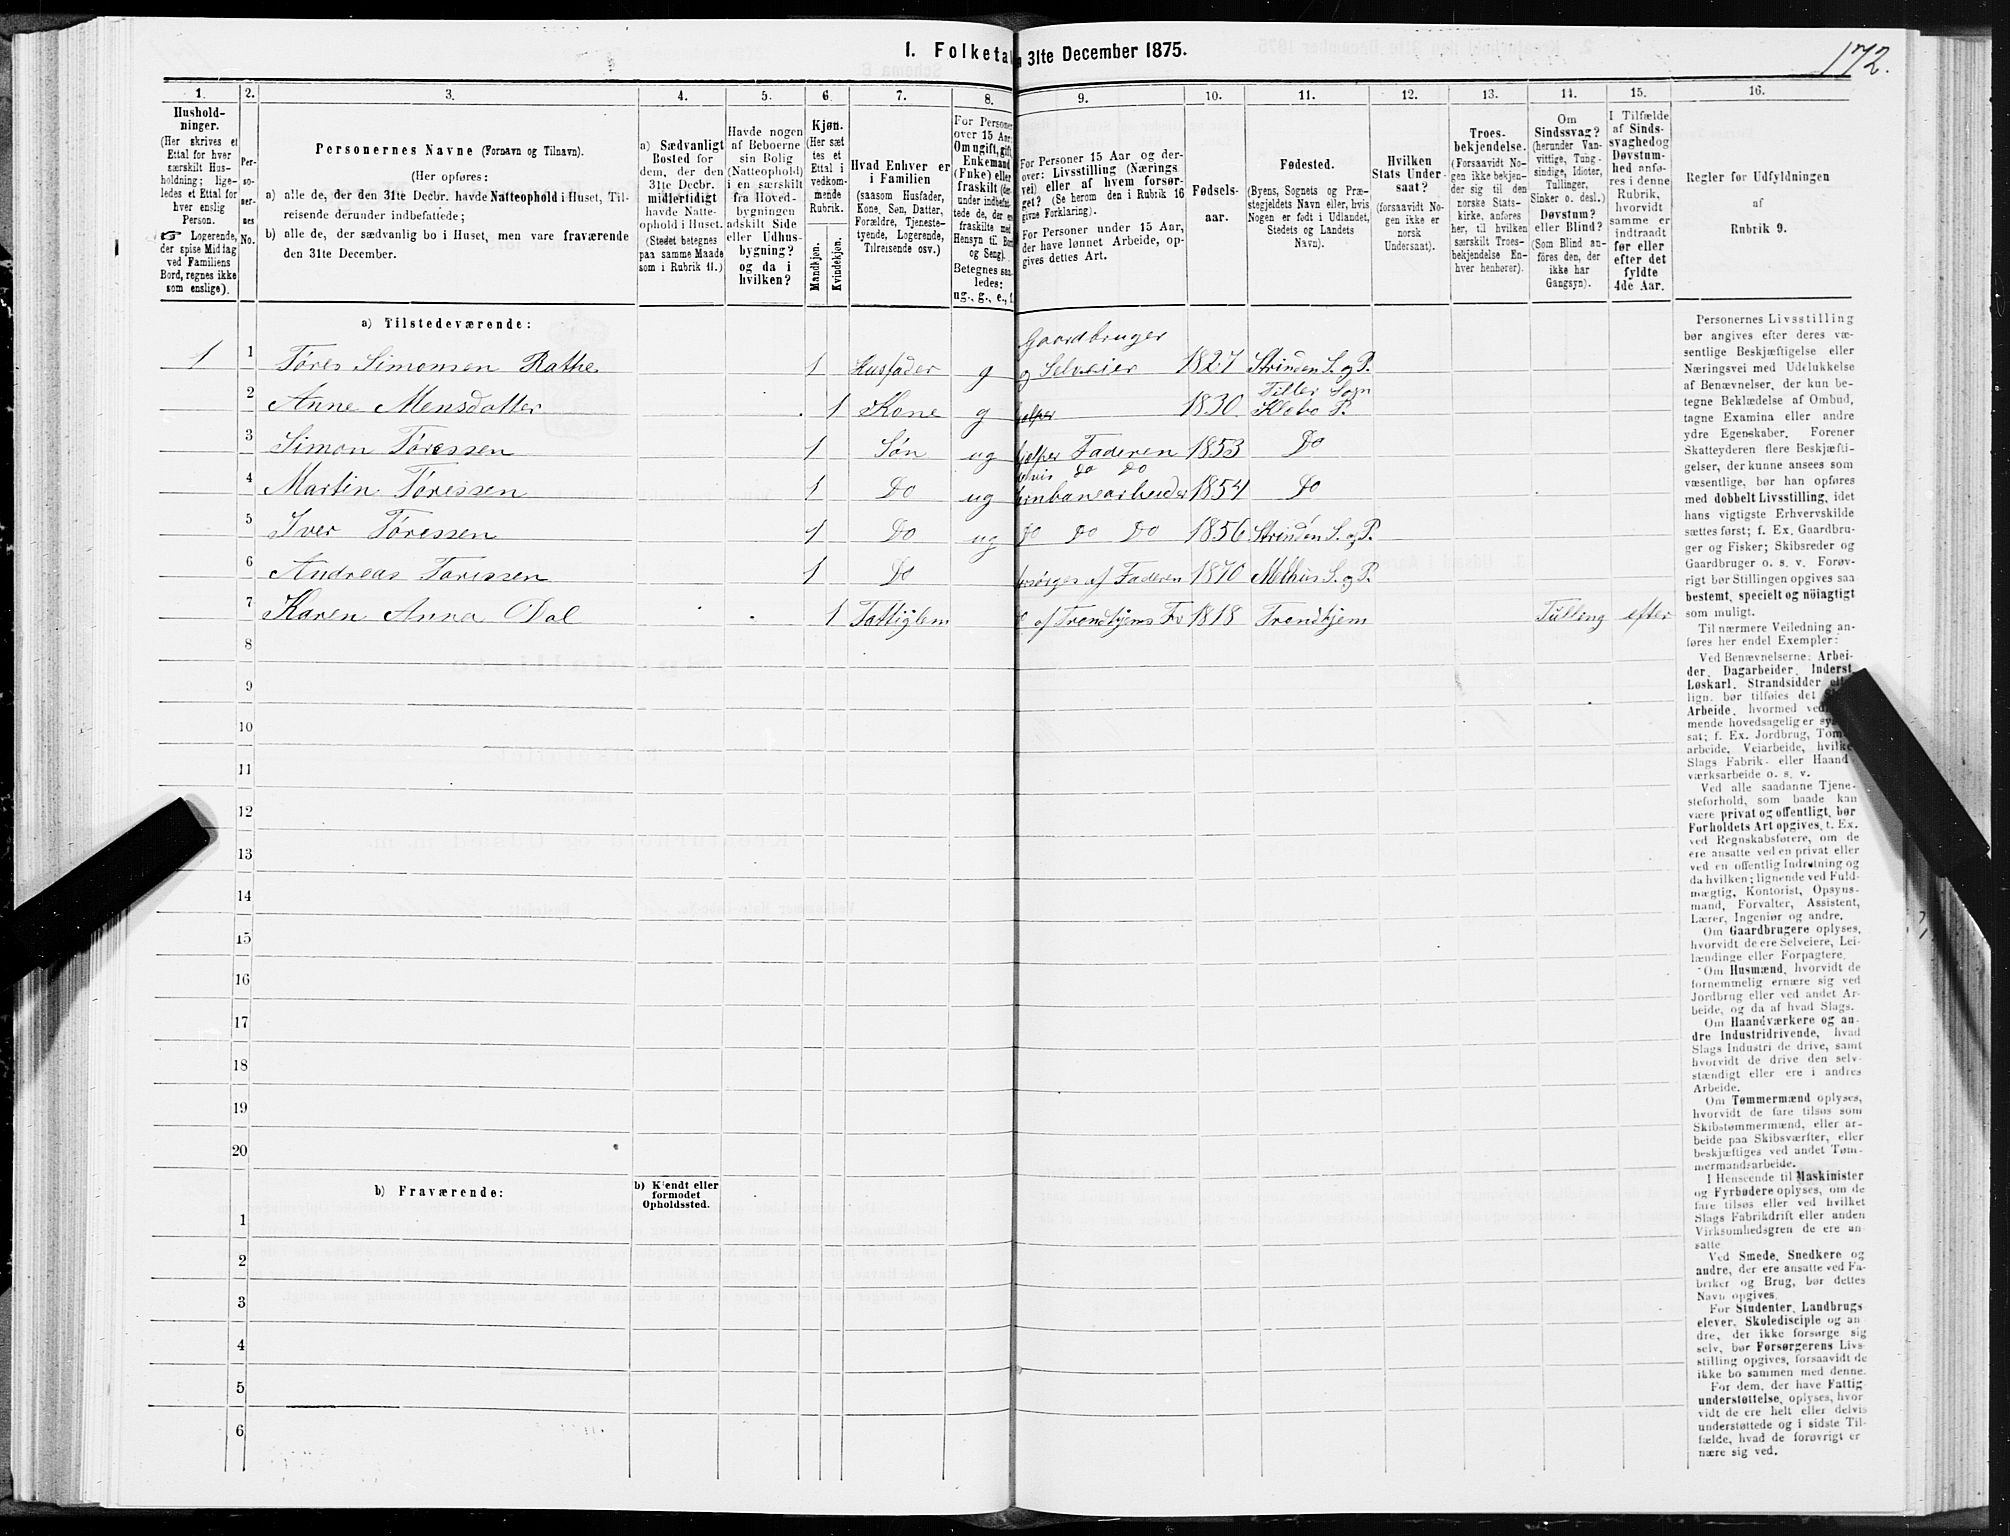 1. Folketal
n 31te December 1875.
172.
1. 2. 3. 4. 5. 6. 7. 8. 9. 10. 11. 12. 13. 14. 15. 16.
Hushold-
ninger.
(Her skrives et
Ettal for hver
særskilt Hus-
holdning; lige-
ledes et Ettal for
hver enslig
Person.
☞ Logerende,
der spise Middag
ved Familiens
Bord, regnes ikke
som enslige).
Per-
so-
ner-
nes
No.
Personernes Navne (Fornavn og Tilnavn).
(Her opføres:
a) alle de, der den 31te Decbr. havde Natteophold i Huset, Til-
reisende derunder indbefattede;
b) alle de, der sædvanlig bo i Huset, men vare fraværende
den 31te December.
a) Sædvanligt
Bosted for
dem, der den
31te Decbr.
midlertidigt
havde Natte-
ophold i Huset.
(Stedet betegnes
paa samme Maade
som i Rubrik 11.)
Havde nogen
af Beboerne
sin Bolig
(Natteophold)
i en særskilt
fra Hoved-
bygningen
adskilt Side
eller Udhus-
bygning?
og da i
hvilken?
Kjøn.
(Her sæt
tes et
Ettal i
vedkom-
mende
Rubrik.
Mandkjøn.
Kvindekjøn.
Hvad Enhver er
i Familien
(saasom Husfader,
Kone, Søn, Datter,
Forældre, Tjeneste-
tyende, Logerende,
Tilreisende osv.)
For Personer
over 15 Aar:
Om ugift, gift,
Enkemand
(Enke) eller
fraskilt (der-
under indbefat-
tede de, der ere
fraskilte med
Hensyn til Bord
og Seng).
Betegnes saa-
ledes:
ug., g., e., f.
For Personer 15 Aar og der-
over: Livsstilling (Nærings
vei) eller af hvem forsør-
get? (Se herom den i Rubrik 16
givne Forklaring).
For Personer under 15 Aar,
der have lønnet Arbeide, op-
gives dettes Art.
Fødsels-
aar.
Fødested.
(Byens, Sognets og Præ-
stegjeldets Navn eller, hvis
Nogen er født i Udlandet,
Stedets og Landets
Navn).
Hvilken
Stats Under-
saat?
(forsaavidt No-
gen ikke er
norsk
Undersaat).
Troes-
bekjendelse.
(Forsaavidt No-
gen ikke bekjen-
der sig til den
norske Stats-
kirke, anføres
her, til hvilken
særskilt Troes-
bekjendelse En-
hver henhører).
Om
Sindssvag?
(herunder Van-
vittige, Tung-
sindige, Idioter,
Tullinger,
Sinker o. desl.)
Døvstum?
eller Blind?
(Som Blind an-
føres den, der
ikke har
Gangsyn).
I Tilfælde
af Sinds-
svaghed og
Døvstum-
hed anfø-
res i denne
Rubrik,
hvorvidt
samme er
indtraadt
før eller
efter det
fyldte
4de Aar.
Regler for Udfyldningen
af
Rubrik 9.
a) Tilstedeværende:
Gaardbruger
1 1 Tøres Simonsen Rathe 1 Husfader g og Selveier 1827 Strinden S. og P.
Tiller Sogn
2 Anne Mensdatter 1 Kone g 1830 Klebo P.
3 Simon Tøressen 1 Søn ug hjelper Faderen 1853 Do
Do Do
4 Martin Tøressen 1 Do ug ernbanearbeider 1854 Do
5 Iver Tøressen 1 Do ug Do Do Do 1856 Strinden S. og P.
6 Andreas Tøressen 1 Do forsørges af Faderen 1870 Melhus S. og P.
7 Karen Anna Dal 1 Fattiglem af Trondhjems Fv 1818 Trondhjem Tulling efter
8
9
10
11
12
13
14
15
16
17
18
19
20
b) Fraværende:
b) Kjendt eller
formodet
Opholdssted.
1
2
3
4
5
6
Personernes Livsstilling
bør angives efter deres væ-
sentlige Beskjæftigelse eller
Næringsvei med Udelukkelse
af Benævnelser, der kun be-
tegne Beklædelse af Ombud,
tagne Examina eller andre
ydre Egenskaber. Forener
Skatteyderen flere Beskjæfti-
gelser, der kunne ansees som
væsentlige, bør han opføres
med dobbelt Livsstilling, idet
hans vigtigste Erhvervskilde
sættes først; f. Ex. Gaardbru-
ger og Fisker; Skibsreder og
Gaardbruger o. s. v. Forøv-
rigt bør Stillingen opgives saa
bestemt, specielt og nöiagtigt
som muligt.
Til nærmere Veiledning an-
føres her endel Exempler:
Ved Benævnelserne: Arbei-
der, Dagarbeider, Inderst,
Løskarl, Strandsidder eller
lign. bør tilføies det
Arbeide, hvormed ved
mende hovedsagelig er sys
sat; f. Ex. Jordbrug, Tom
arbeide, Veiarbeide, hvilke
Slags Fabrik- eller Haand-
værksarbeide o. s. v.
Ved alle saadanne Tjene-
steforhold, som baade kan
være privat og offentligt, bør
Forholdets Art opgives, t. Ex.
ved Regnskabsførere, om de
ere ansatte ved en privat eller
ved en offentlig Indretning og
da hvilken; lignende ved Fuld-
mægtig, Kontorist, Opsyns-
mand, Forvalter, Assistent,
Lærer, Ingeniør og andre.
Om Gaardbrugere oplyses,
hvorvidt de ere Selveiere, Lei-
lændinge eller Forpagtere.
Om Husmænd, hvorvidt de
fornemmelig ernære sig ved
Jordbrug eller ved andet Ar-
beide, og da af hvad Slags.
Om Haandværkere og an-
dre Industridrivende, hvad
Slags Industri de drive, samt
hvorvidt de drive den selv-
stændigt eller ere i andres
Arbeide.
Om Tømmermænd oplyses,
hvorvidt de fare tilsøs som
Skibstømmermænd, eller ar-
beide paa Skibsværfter, eller
beskjæftiges ved andet Tøm-
mermandsarbeide.
I Henseende til Maskinister
og Fyrbødere oplyses, om de
fare tilsøs eller ved hvilket
Slags Fabrikdrift eller anden
Virksomhedsgren de ere an-
satte.
Ved Smede, Snedkere og
andre, der ere ansatte ved Fa-
briker og Brug, bør dettes
Navn opgives.
For Studenter, Landbrugs-
elever, Skoledisciple og an
dre, der ikke forsørge sig
selv, bør Forsørgerens Livs-
stilling opgives, forsaavidt de
ikke bo sammen med denne.
For dem, der have Fattig-
understøttelse, oplyses, hvor
vidt de ere helt eller delvis
understøttede og i sidste Til-
fælde, hvad de forøvrigt er
nære sig ved.